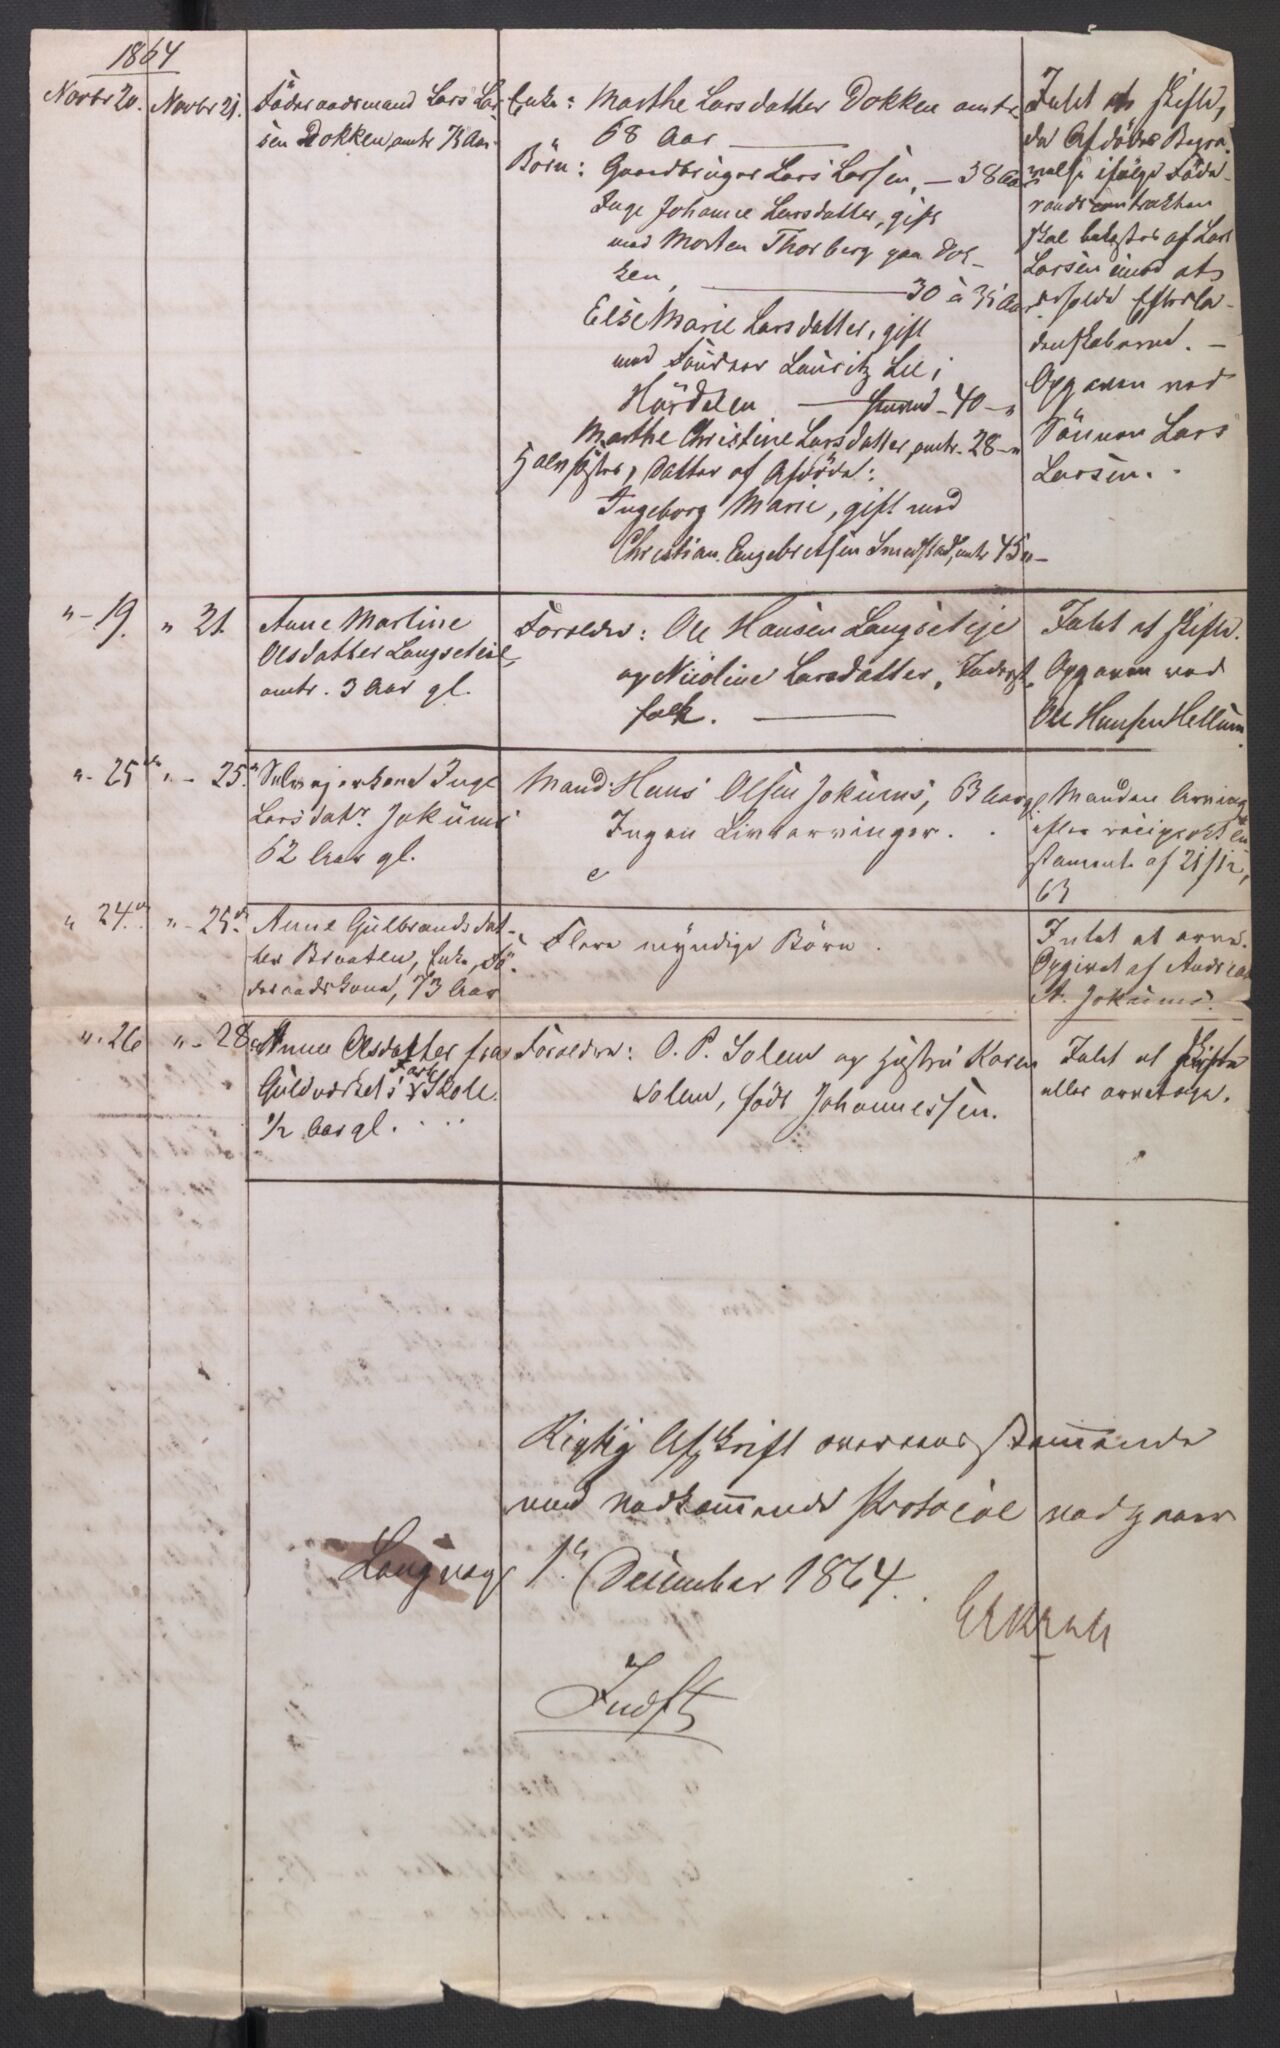 1864
Novbr 20. Novbr 21. Föderaadsmand Lars Lar
sen Dokken, omtr 73 Aar.
Enke: Marthe Larsdatter Dokken omtr
68 Aar
Börn: Gaardbruger Lars Larsen, — 38 Aar
Inge Johanne Larsdatter, gift
med Morten Thorberg paa Dok-
ken, 30 à 35 Aar
Else Marie Larsdatter, gift
med Lauritz Lie i
Hurdalen — 40 — "
Marthe Christine Larsdatter, omtr. 28 — "
Halvsöster, Datter af Afdöde:
Ingeborg Marie, gift med
Christian Engebretsen Smedstad, omtr 45 " —
Intet at skifte,
da Afdödes Begra-
velse ifölge Föde-
raadscontrakten
skal bekostes af Lars
Larsen imod at
beholde Efterla-
denskaberne. —
Opgaven ved
Sönnen Lars
Larsen. -
" - 19. " 21. Anne Martine
Olsdatter Langseteie,
omtr. 3 Aar gl.
Foreldre: Ole Hansen Langseteje
og Nicoline Larsdatter, Inderst
folk.
Intet at skifte.
Opgaven ved
Ole Hansen Hellum
" - 25de " - 25de Selvejerkone Inge
Larsdatr. Jokums
62 Aar gl.
Mand: Hans Olsen Jokums, 63 Aar gl
Ingen Livsarvinger.
Manden Arving
efter reciprokt Te
stament af 21/12,
63
" 24de " - 25de Anne Gulbrandsdat-
ter Braaten, Enke, Fö-
deraadskone, 73 Aar
Flere myndige Börn.
Intet at arve.
Opgivet af Andreas
A. Jokums.
" - 26 " - 28de Anne Olsdatter fra
Guldverkets Skole
1/2 Aar gl.
Foreldre: O. P. Solem og Hustru Karen
Solem, född Johannessen.
Intet at skifte
eller arvetage.
Rigtig Afskrift overeensstemmende
med vedkommende Protocol vedgaaer
Langvag 1ste December 1864.